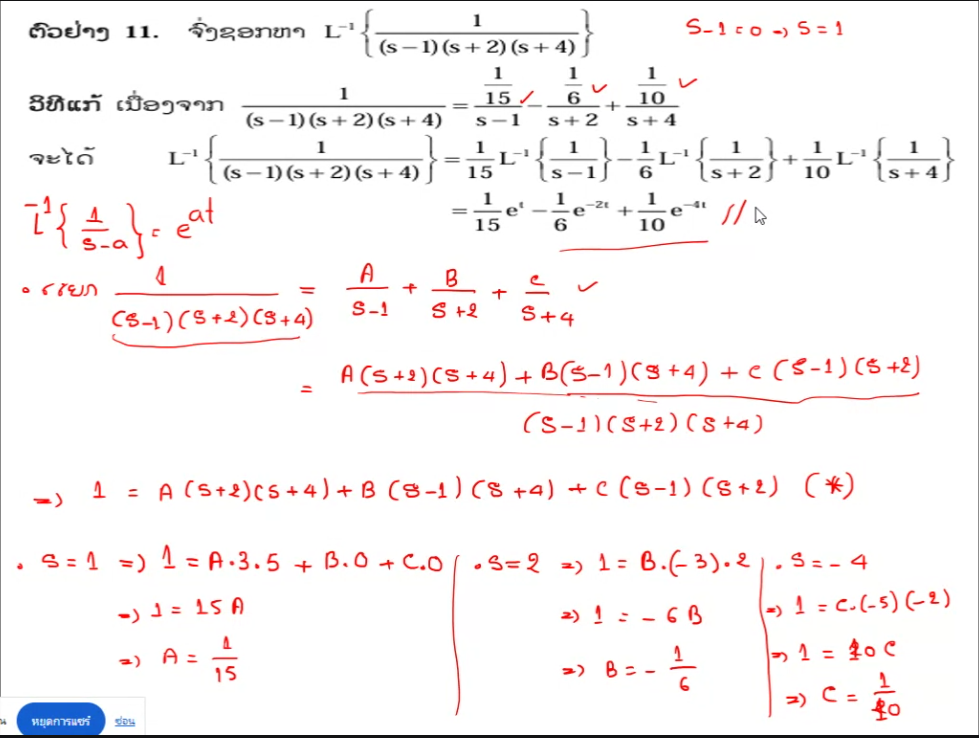 ຕົວຢ່າງ 11. ຈົ່ງຊອກຫາ L⁻¹{1/((s−1)(s+2)(s+4))} S-1=0 => S=1
ວິທີແກ້ ເນື່ອງຈາກ 1/((s−1)(s+2)(s+4)) = (1/15)/(s−1) ✓ − (1/6)/(s+2) ✓ + (1/10)/(s+4) ✓
ຈະໄດ້ L⁻¹{1/((s−1)(s+2)(s+4))} = 1/15 L⁻¹{1/(s−1)} − 1/6 L⁻¹{1/(s+2)} + 1/10 L⁻¹{1/(s+4)}
= 1/15 e^t − 1/6 e^(−2t) + 1/10 e^(−4t) //
L⁻¹{1/(s-a)} = e^(at)
• ແຍກ 1/((S-1)(S+2)(S+4)) = A/(S-1) + B/(S+2) + C/(S+4) ✓
= (A(S+2)(S+4) + B(S-1)(S+4) + C(S-1)(S+2))/((S-1)(S+2)(S+4))
=> 1 = A(S+2)(S+4) + B(S-1)(S+4) + C(S-1)(S+2) (*)
• S=1 => 1 = A·3.5 + B.0 + C.0
=> 1 = 15A
=> A = 1/15
• S=2 => 1 = B.(-3)·2
=> 1 = -6B
=> B = -1/6
• S=-4
=> 1 = C.(-5)(-2)
=> 1 = 10C
=> C = 1/10
หยุดการแชร์ ซ่อน